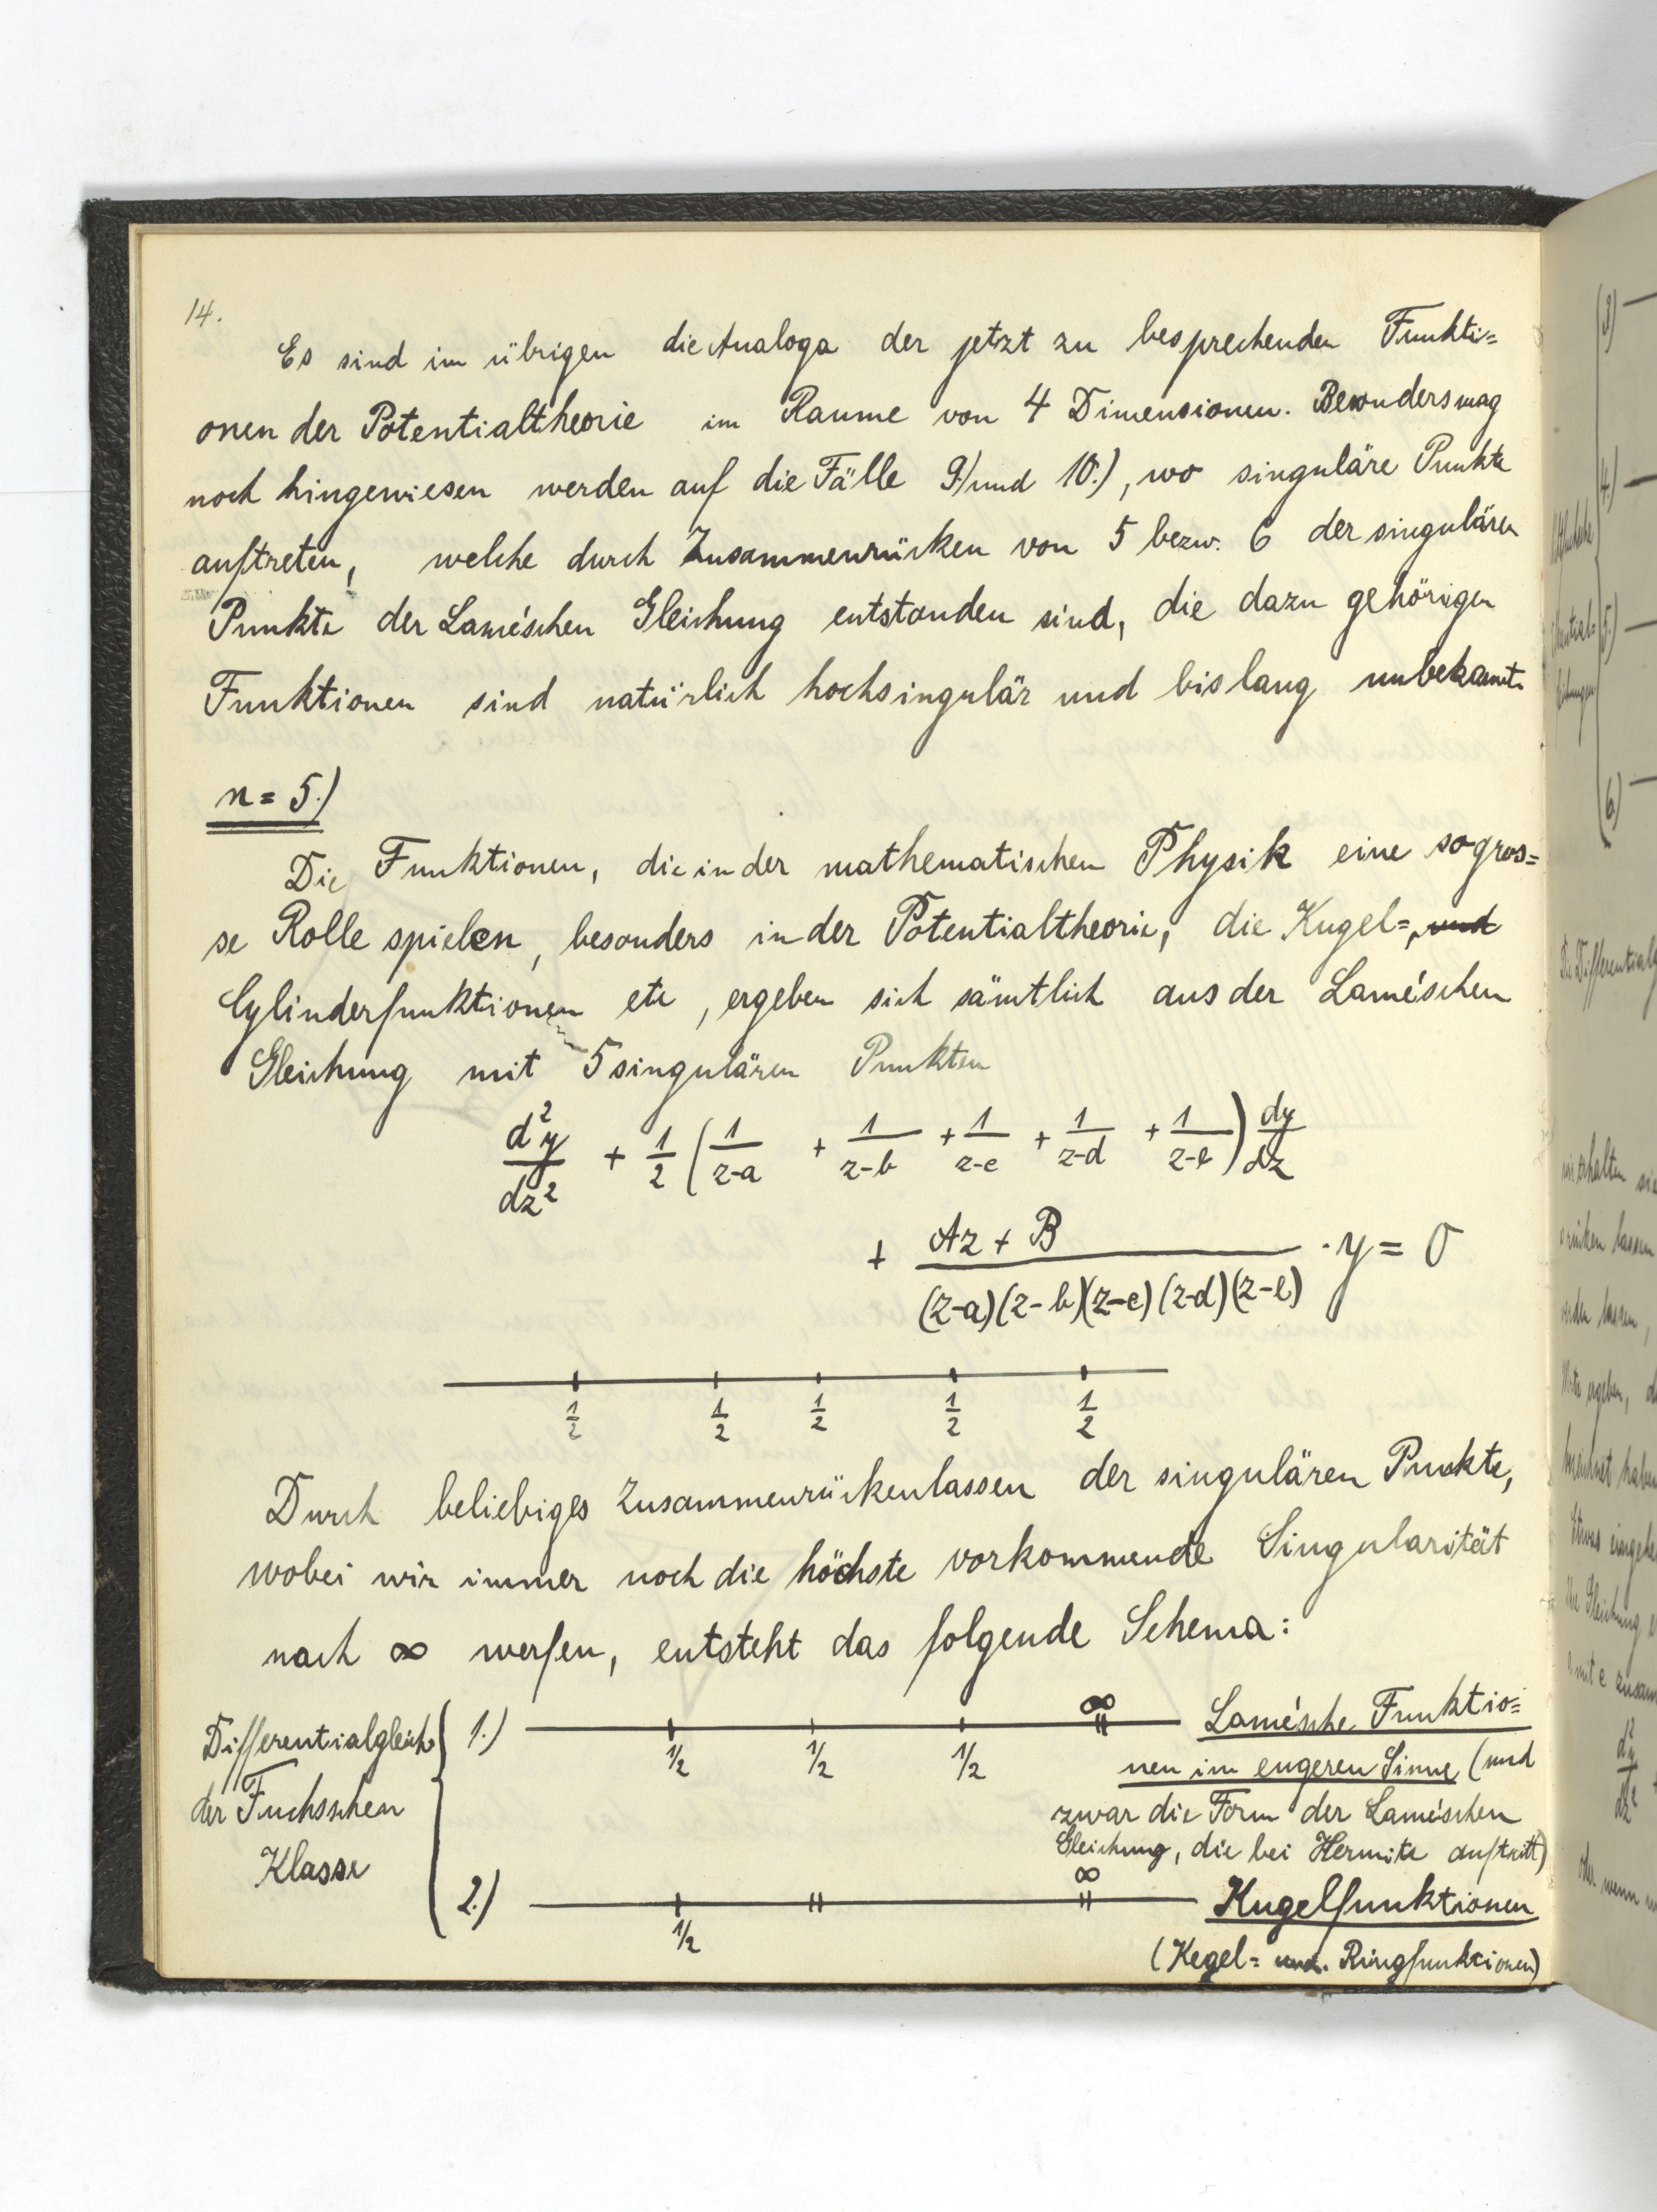 14.
Es sind im übrigen die Analoga der jetzt zu besprechenden Funkti=
onen der Potentialtheorie im Raume von 4 Dimensionen. Besonders mag
noch hingewiesen werden auf die Fälle 9.) und 10.), wo singuläre Punkte
auftreten, welche durch Zusammenrücken von 5 bezw. 6 der singulären
Punkte der Lamé'schen Gleichung entstanden sind, die dazu gehörigen
Funktionen sind natürlich hochsingulär und bislang unbekannt.
n = 5.)
Die Funktionen, die in der mathematischen Physik eine so gros=
se Rolle spielen, besonders in der Potentialtheorie, die Kugel=, und
Cylinderfunktionen etc, ergeben sich sämtlich aus der Lamé'schen
Gleichung mit 5 singulären Punkten
d²y/dz² + 1/2 (1/z-a + 1/z-b + 1/z-c + 1/z-d + 1/z-e) dy/dz
+ Az + B / (z-a)(z-b)(z-c)(z-d)(z-e) · y = 0
1/2 1/2 1/2 1/2 1/2
Durch beliebiges Zusammenrückenlassen der singulären Punkte,
wobei wir immer noch die höchste vorkommende Singularität
nach ∞ werfen, entsteht das folgende Schema:
Differentialgleich.
der Fuchsschen
Klasse
1.) 1/2 1/2 1/2 ∞ Lamé'sche Funktio=
nen im engeren Sinne (und
zwar die Form der Lamé'schen
Gleichung, die bei Hermite auftritt)
2.) 1/2 ∞ Kugelfunktionen
(Kegel= und Ringfunktionen)
(3)
(4.)
(5.)
(6)